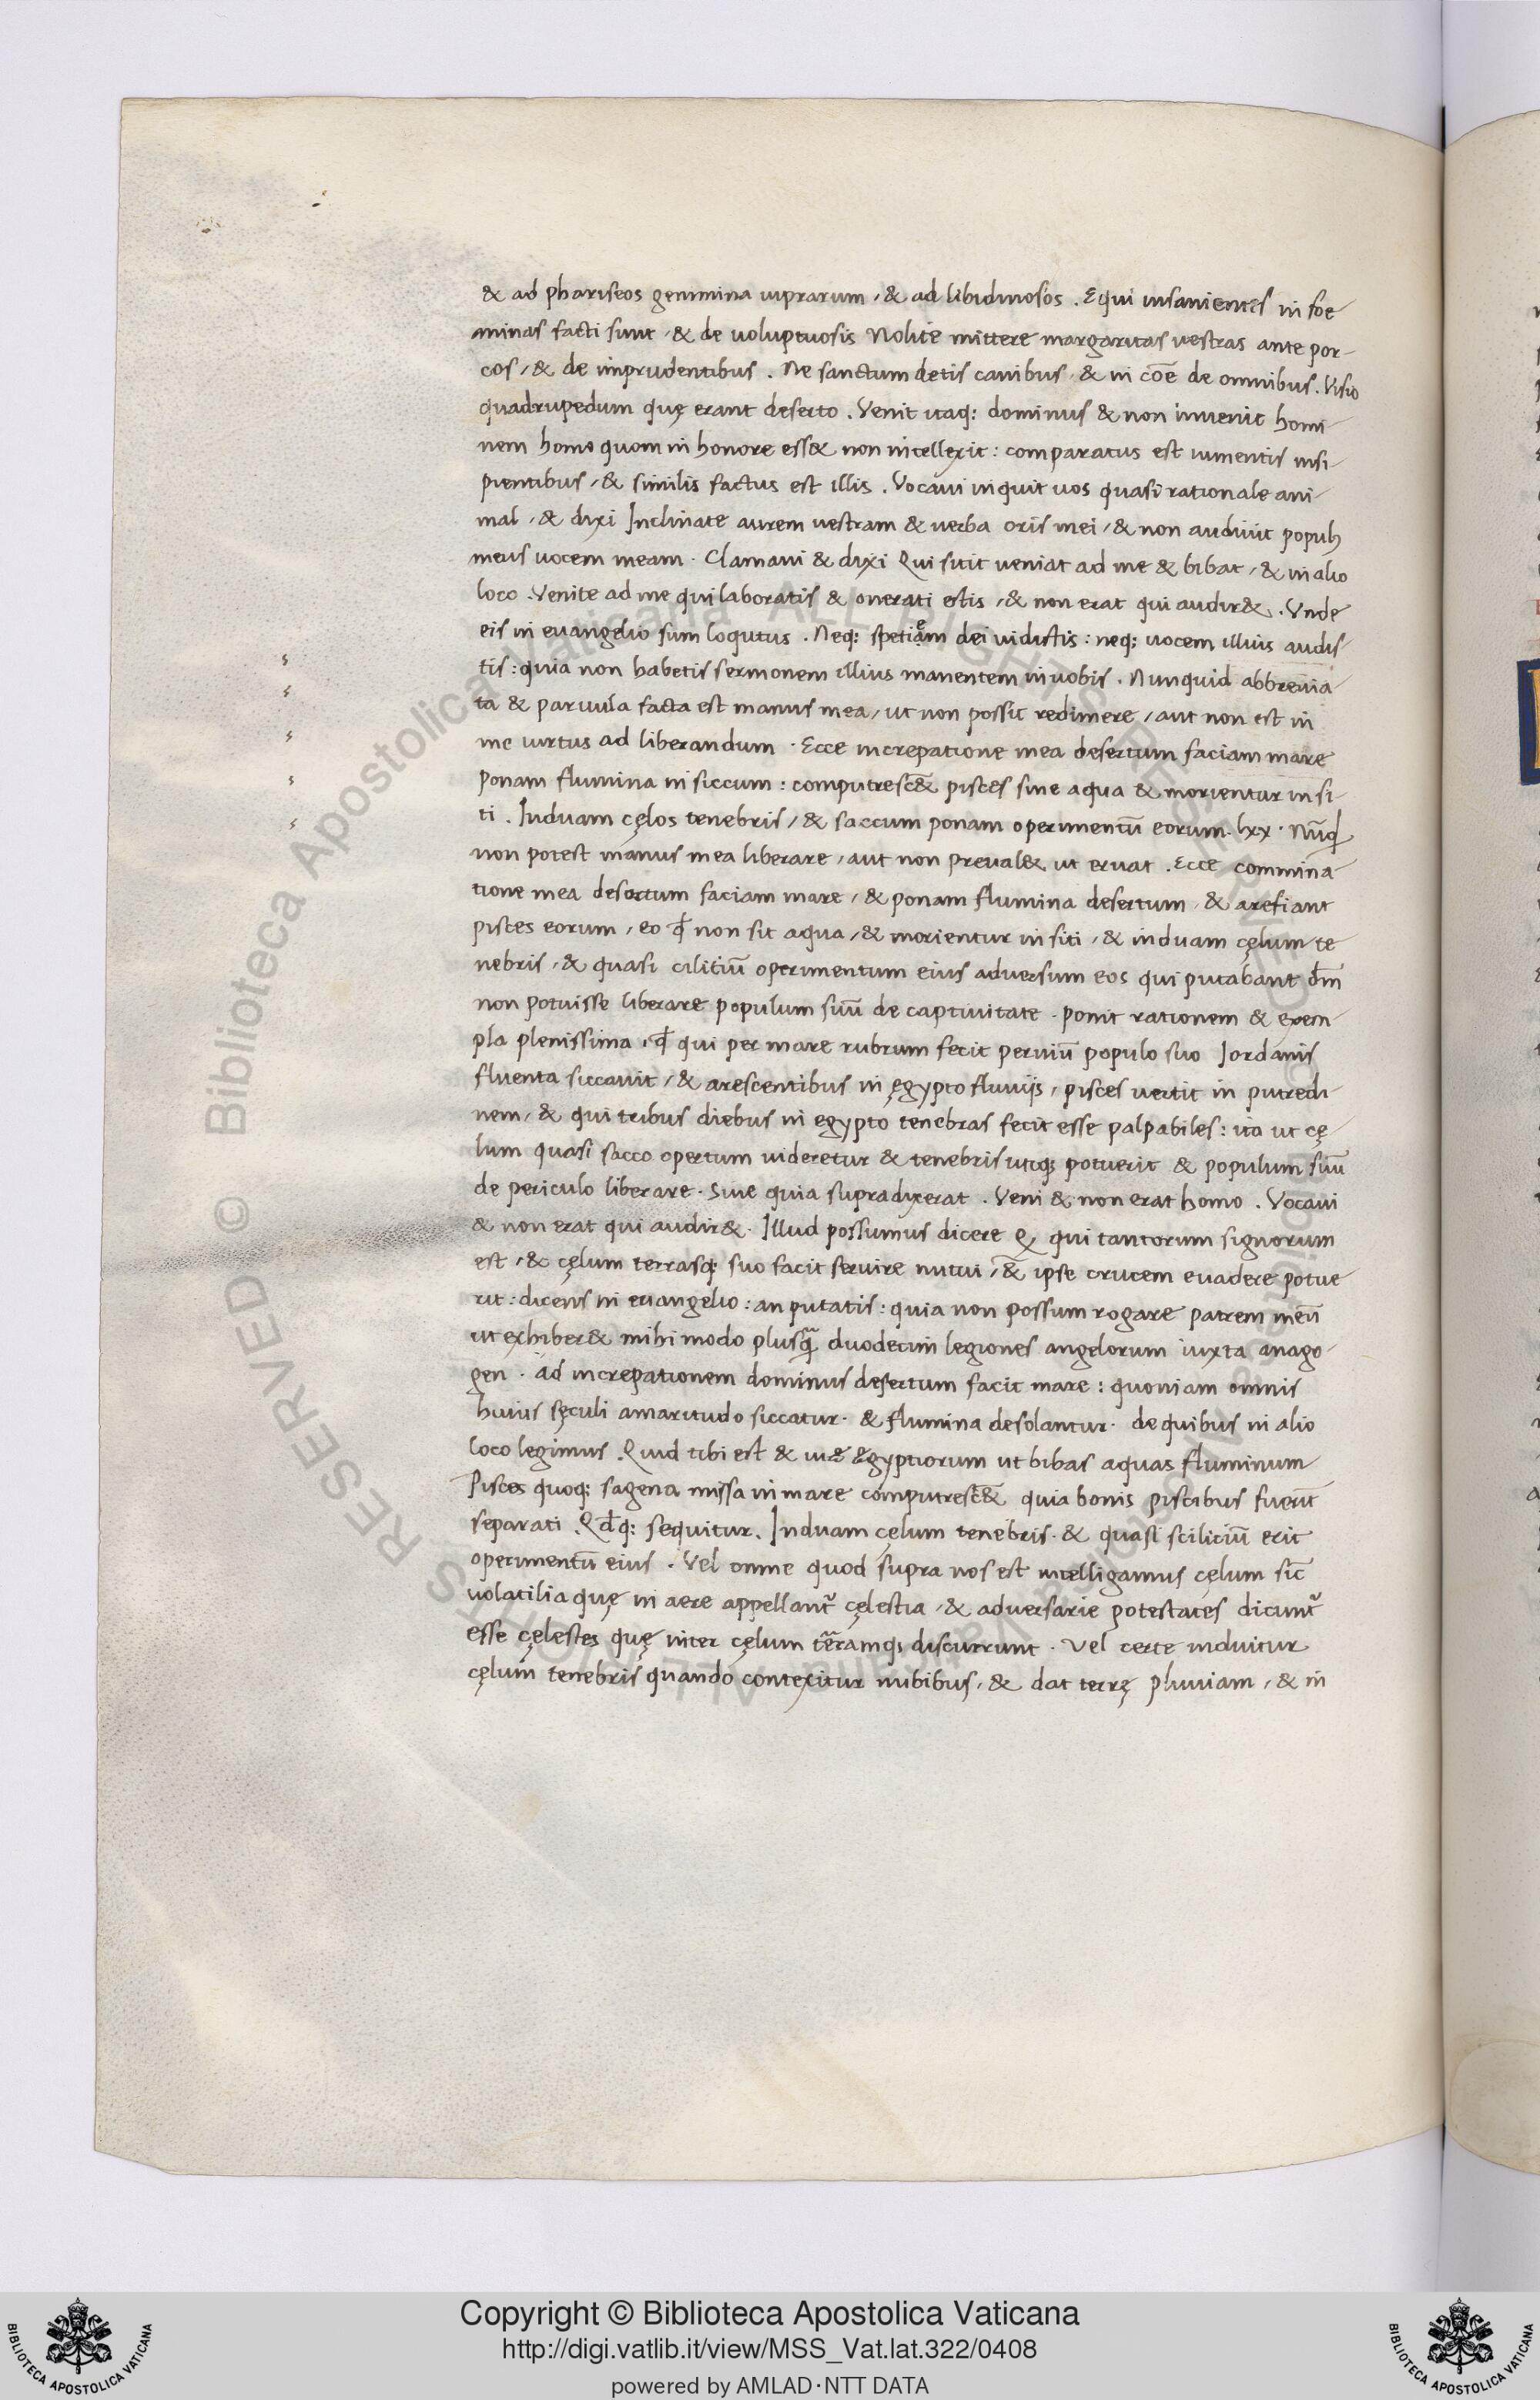 & ad phariseos gemmina uiprarum, & ad libidinosos. Equi insanientes in foe
minas facti sunt, & de uoluptuosis Nolite mittere margaritas uestras ante por-
cos, & de imprudentibus. Ne sanctum detis canibus, & in cōe de omnibus. Visio
quadrupedum quę erant deserto. Venit itaq; dominus & non inuenit homi
nem homo quom in honore ess& non intellexit: comparatus est iumentis insi
pientibus, & similis factus est illis. Vocaui inquit uos quasi rationale ani
mal, & dixi Inclinate aurem uestram & uerba oris mei, & non audiuit
meus uocem meam. Clamaui & dixi Qui sitit ueniat ad me & bibat, & in alio
loco. Venite ad me qui laboratis & onerati estis, & non erat qui audir&. Vnde
eis in euangelio sum loqutus. Neq; dei uidistis: neq; uocem illius audis
tis: quia non habetis sermonem illius manentem in uobis. Nunquid abbreuia
ta & paruula facta est manus mea, ut non possit redimere, aut non est in
me uirtus ad liberandum. Ecce increpatione mea desertum faciam mare
ponam flumina in siccum: computresc&̄ pisces sine aqua & morientur in si
ti. Induam cęlos tenebris, & saccum ponam operimentū eorum. lxx.
non potest manus mea liberare, aut non preual& ut eruat. Ecce commina
tione mea desertum faciam mare, & ponam flumina desertum, & arefiant
pisces eorum, eo ꝙ non sit aqua, & morientur in siti, & induam cęlum te
nebris, & quasi cilitiū operimentum eius aduersum eos qui putabant dm̄
non potuisse liberare populum suū de captiuitate. ponit rationem & exem
pla plenissima, ꝙ qui per mare rubrum fecit peruiū populo suo Jordanis
fluenta siccauit, & arescentibus in ęgypto fluuijs, pisces uertit in putredi
nem, & qui tribus diebus in egypto tenebras fecit esse palpabiles: ita ut cę
lum quasi sacco opertum uideretur & tenebris utiq; potuerit & populum suū
de periculo liberare. Siue quia supradixerat. Veni & non erat homo. Vocaui
& non erat qui audir&. Illud possumus dicere qui tantorum signorum
est, & cęlum terrasq; suo facit seruire nutui, &̄ ipse crucem euadere potue
rit: dicens in euangelio: an putatis: quia non possum rogare patrem meū
ut exhiber& mihi modo plusq̄ duodecim legiones angelorum iuxta anago
gen. ad increpationem dominus desertum facit mare: quoniam omnis
huius sęculi amaritudo siccatur. & flumina desolantur. de quibus in alio
loco legimus. Quid tibi est & uię ęgyptiorum ut bibas aquas fluminum
Pisces quoq; sagena missa in mare computresc&̄ quia bonis piscibus fuerūt
separati. Qđq; sequitur. Induam cęlum tenebris. & quasi scilitiū erit
operimentū eius. Vel omne quod supra nos est intelligamus cęlum sic̄
uolatilia quę in aere appellant᷑ cęlestia, & aduersarie potestates dicunt᷑
esse cęlestes quę inter cęlum tēramq; discurrunt. Vel certe induitur
cęlum tenebris quando contexitur nubibus, & dat terrę pluuiam, & in
Copyright © Biblioteca Apostolica Vaticana
http://digi.vatlib.it/view/MSS_Vat.lat.322/0408
powered by AMLAD·NTT DATA
BIBLIOTECA APOSTOLICA VATICANA
BIBLIOTECA APOSTOLICA VATICANA